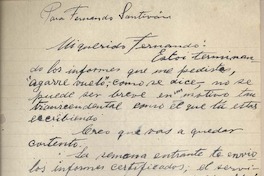 Para Fernando Santiván
Mi querido Fernando:
Estoi terminan
do los informes que me pediste,
"agarré vuelo", como se dice - no se
puede ser breve en motivo tan
transcendental como el que tú estás
escribiendo.
Creo que vas a quedar
contento.
La semana entrante te envío
los informes certificados; el servi-